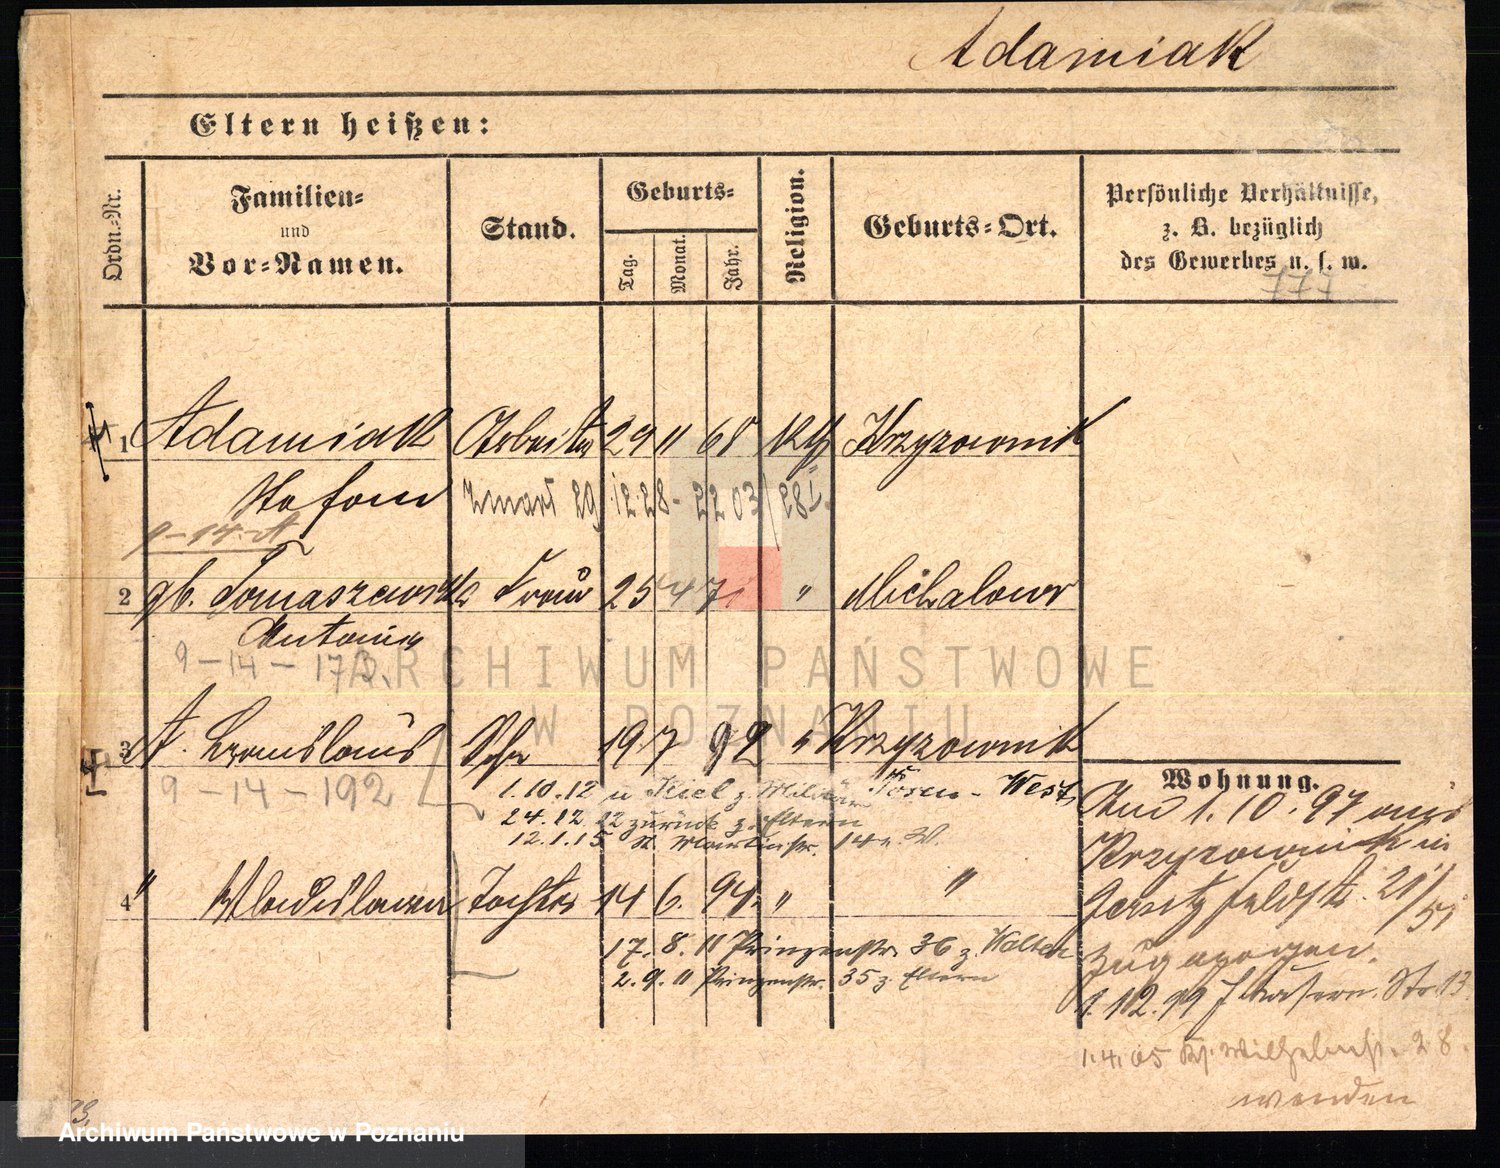 Adamiak
Eltern heißen:
Ordn.-Nr.
Familien-
und
Vor-Namen.
Stand.
Geburts-
Tag.
Monat.
Jahr.
Religion.
Geburts-Ort.
Persönliche Verhältnisse,
z. B. bezüglich
des Gewerbes u. s. w.
777
1 Adamiak Arbeiter 29 11 68 Kth Krzyzownik
Stefan
Zmarł 29 12 28 -
2 gb. Tomaszewska Frau 25 4 7 " Michalowo
Antonie
9 - 14 - 173.
ARCHIWUM PAŃSTWOWE
W POZNANIU
3 A. Bronislaus Sohn 19 7 92 " Krzyzownik
9 - 14 - 192
1.10.12 n Kiel z. Militär Posen - West
24.12.12 zurück z. Eltern
12.1.15 St. Martinstr. 14 n. W.
4 " Wladislawa Tochter 14 6. 94 " "
17. 8. 11 Prinzenstr. 36 z. Walter
2. 9. 11 Prinzenstr. 35 z. Eltern
Wohnung.
Am 1. 10. 97 aus
Krzyzownik in
Jersitz Feldstr. 21/51
zugezogen.
1. 12. 99 Str. 13
1.4.05 Ks. Wilhelmstr. 28.
wenden
Archiwum Państwowe w Poznaniu